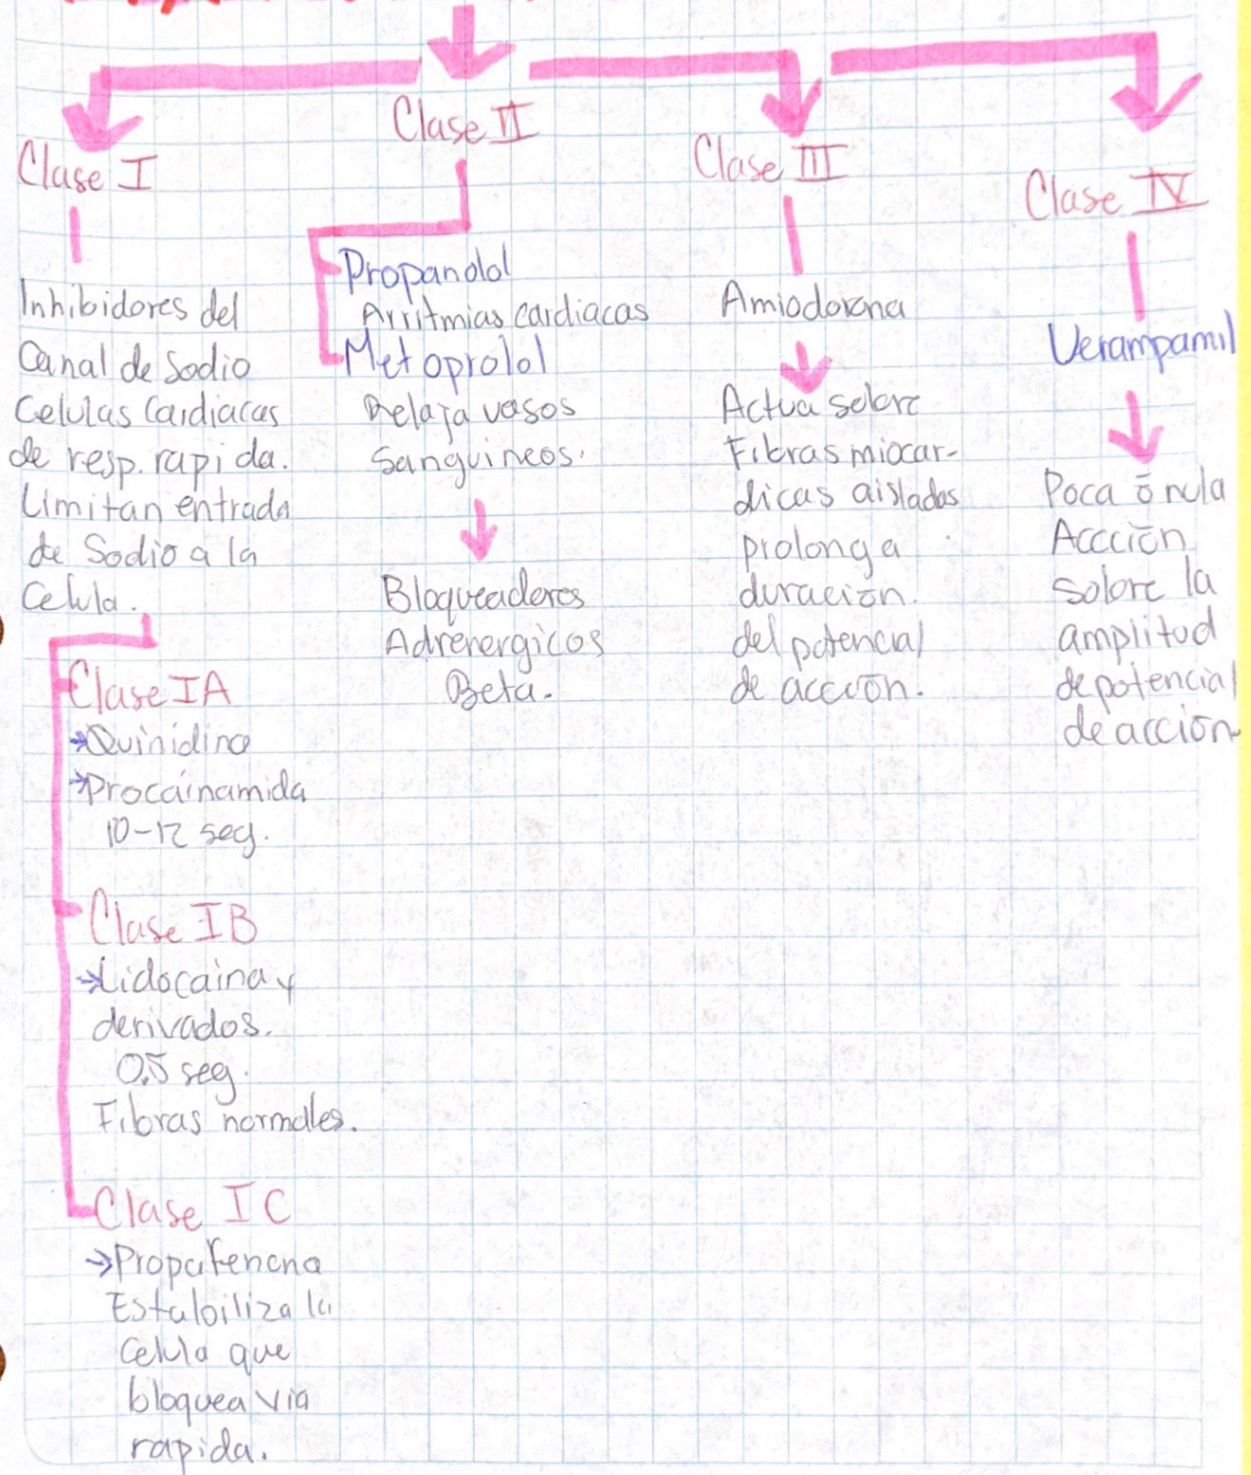 Clase I
Inhibidores del
Canal de Sodio
Celulas Cardiacas
de resp. rapida.
Limitan entrada
de Sodio a la
Celula.
Clase IA
→Quinidina
→Procainamida
10-12 seg.
Clase IB
→Lidocaina y
derivados.
0.5 seg.
Fibras normales.
Clase IC
→Propafenona
Estabiliza la
Celula que
bloquea via
rapida.
Clase II
Propanolol
Arritmias cardiacas
Metoprolol
Relaja vasos
Sanguineos.
Bloqueadores
Adrenergicos
Beta.
Clase III
Amiodorona
Actua sobre
Fibras miocar-
dicas aisladas
prolonga
duracion.
del potencial
de accion.
Clase IV
Verampamil
Poca ó nula
Accción
sobre la
amplitud
de potencial
de acción